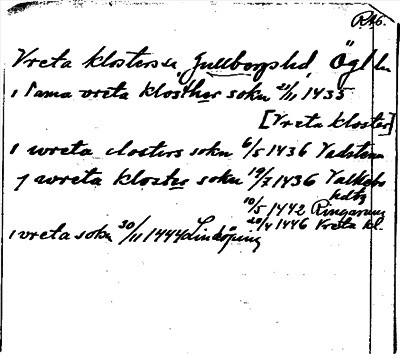 RAp.
Vreta klosters sn Gullbergs hd, Ögl ln
i sama vreta klösther sokn 21/11 1435
[Vreta kloster]
j wreta closters sokn 6/5 1436 Vadstena
j wreta kloster sokn 19/7 1436 Valkebo
hdtg
10/5 1442 Ringarum
20/4 1446 Vreta kl.
i vreta sokn 30/11 1444 Linköping